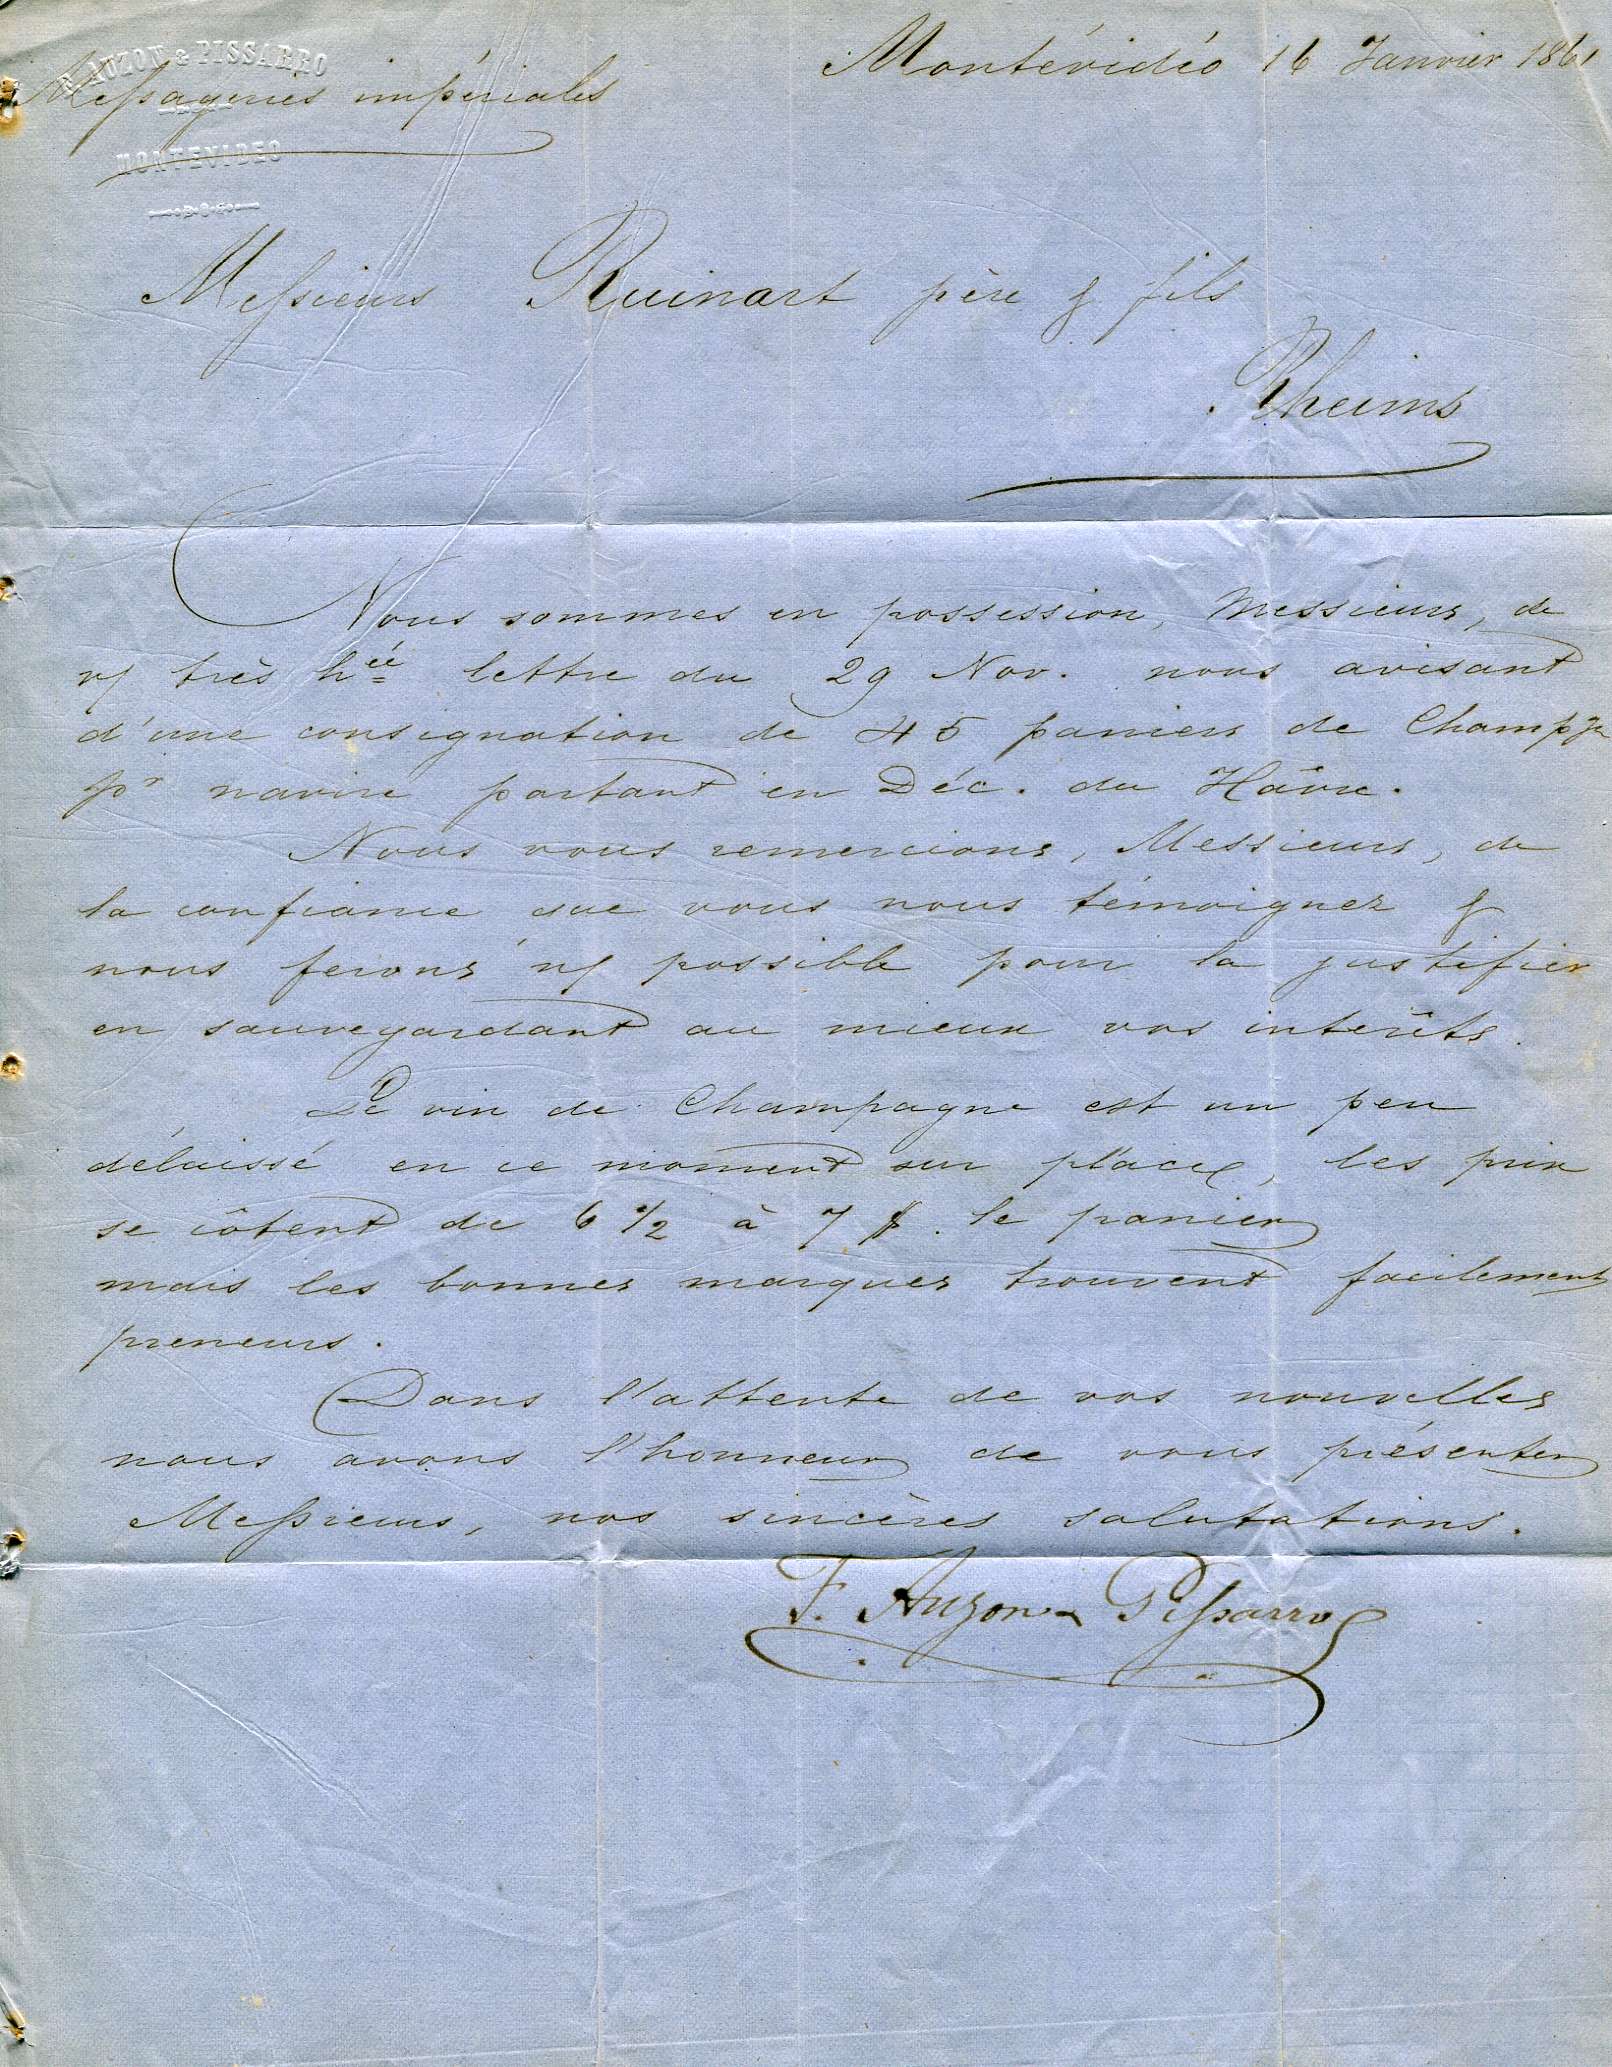 F. AUZON & PISSARRO
MONTEVIDEO
Montévidéo 16 Janvier 1861
Messageries impériales
Messieurs Ruinart père & fils
Rheims
Nous sommes en possession, Messieurs, de
v/ très h.ée lettre du 29 Nov. nous avisant
d'une consignation de 45 paniers de Champ.gne
p.r navire partant en Déc. du Hâvre.
Nous vous remercions, Messieurs, de
la confiance que vous nous témoignez &
nous ferons n/ possible pour la justifier
en sauvegardant au mieux vos intérêts.
Le vin de Champagne est un peu
délaissé en ce moment sur place, les prix
se côtent de 6 1/2 à 7 $. le panier
mais les bonnes marques trouvent facilement
preneurs.
Dans l'attente de vos nouvelles
nous avons l'honneur de vous présenter
Messieurs, nos sincères salutations.
F. Auzon & Pissarro